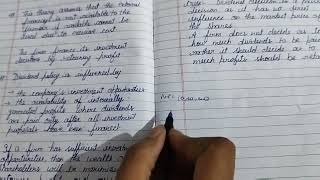 This theory assumes that the external
financing is not available to the
financing of available cannot be
used due to excessive cost
The firm finance its investment
decisions by retaining profit
Dividend policy is influenced by
the company's investment opportunities
the availability of internally
generated profits where dividends
are paid only after all investment
proposals have been financed
If a firm has sufficient investment
opportunities than the wealth of
shareholders will be maximised
Dividend decision is a
decision as it has no direct
influence on the market price of
the shares.
A firm does not decide as to
how much dividends to be paid
rather it should decide as to
much profits should be retain